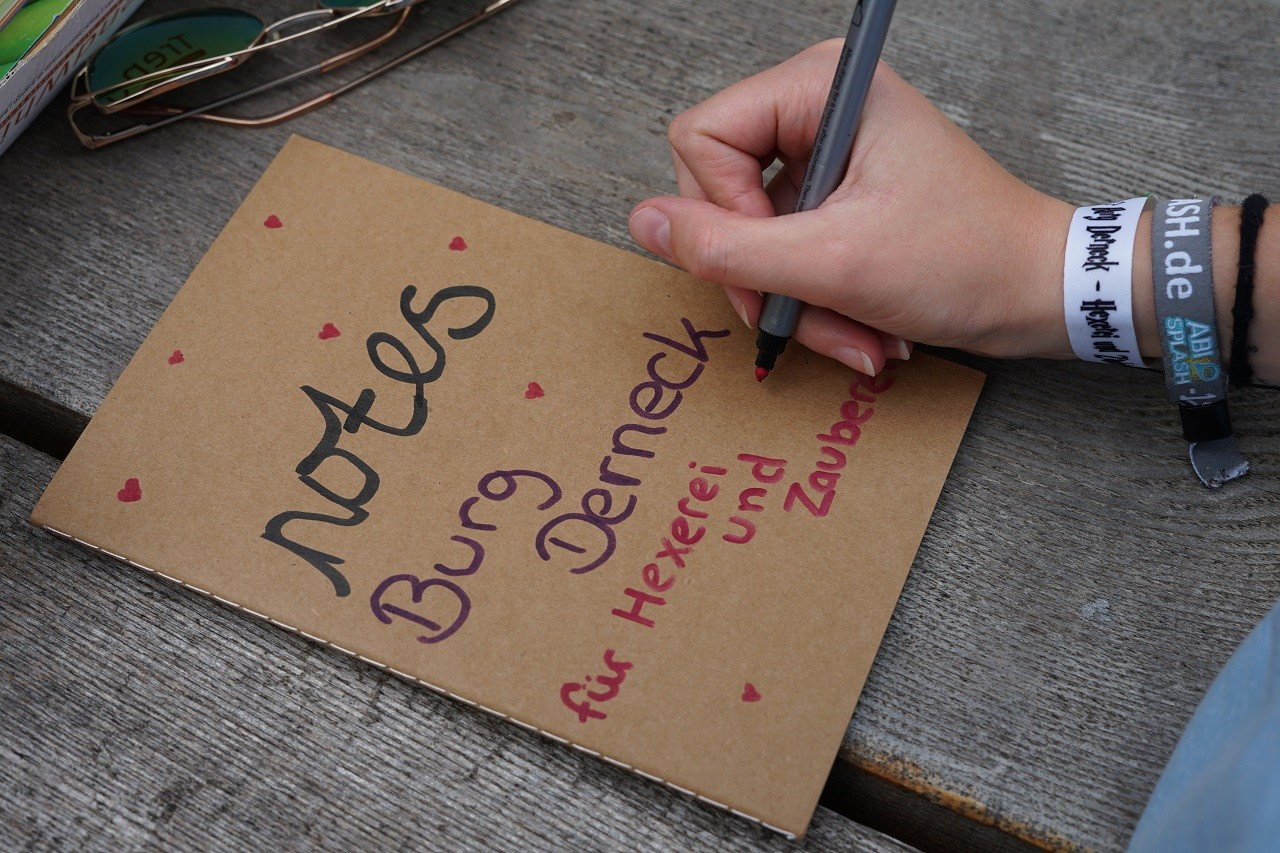 notes
Burg
Derneck
für Hexerei
und
Zaubere
Derneck - Hexerei
ASH.de
ABI
SPLASH